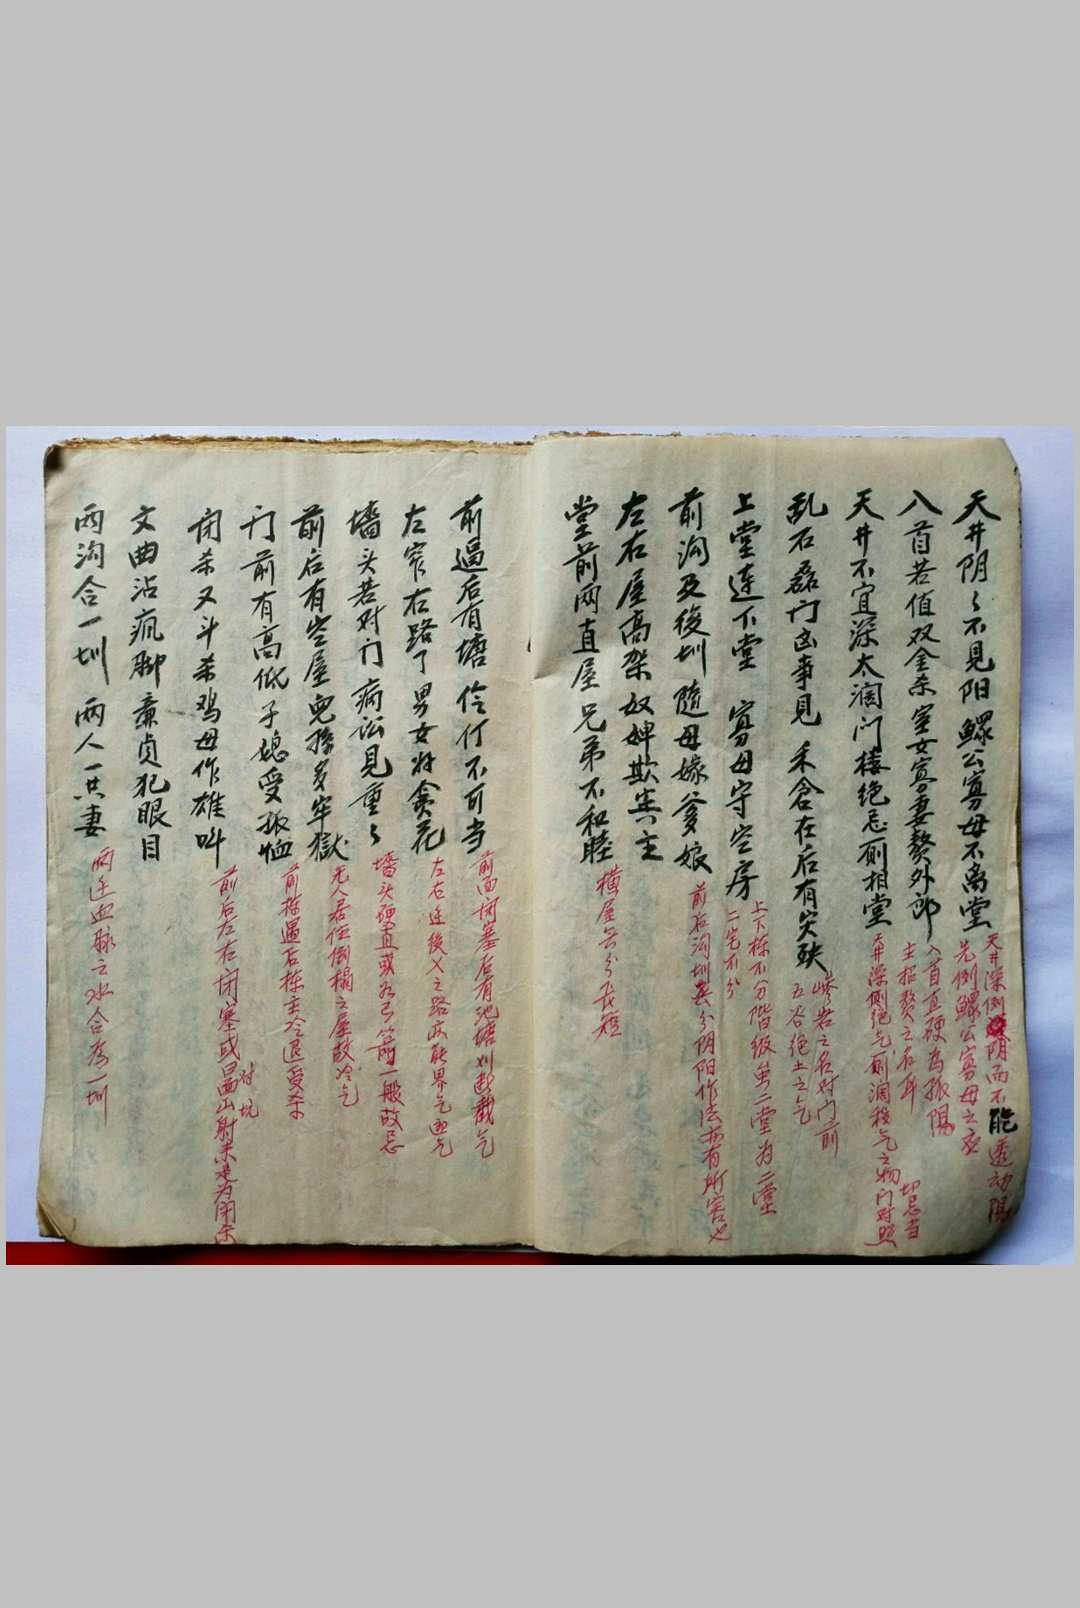 天井阴々不见阳鳏公寡母不离堂
天井深倒阴而不能透动阳
先倒鳏公寡母之应
入首若值双金杀室女寡妻赘外郎
入首直硬为孤阳
主招赘之名耳
天井不宜深太阔门楼绝忌厕相堂
天井深倒绝气厕溷秽气之物门对照
切忌当
乱石磊门凶事见 禾仓在后有灾殃
嵾岩之石对门前
五谷绝土之气
上堂连下堂 寡母守空房
上下栋不分阶级虽二堂为二堂
二宅不分
前沟及後圳随母嫁爹娘
前后沟圳不分阴阳作法两有所害也
左右屋高架奴婢欺宾主
堂前两直屋兄弟不和睦
横屋不分长短
前逼后有塘伶仃不可当
前面闭塞后有池塘刘起截气
左窄右路丁男女好贪花
左右迳後义之路亦能界气逆气
墙头若对门病讼见重々
墙头硬直或为弓箭一般故忌
前后有空屋儿孙多牢獄
无人居住倒榻之屋故冷气
门前有高低子媳受孤恤
前栋逼后栋主冷退受杀
闭杀又斗杀鸡母作雄叫
前后左右闭塞或昌山射来是为闭杀
文曲沾疯脚廉贞犯眼目
两沟合一圳 两人一共妻
两边血脉之水合为一圳